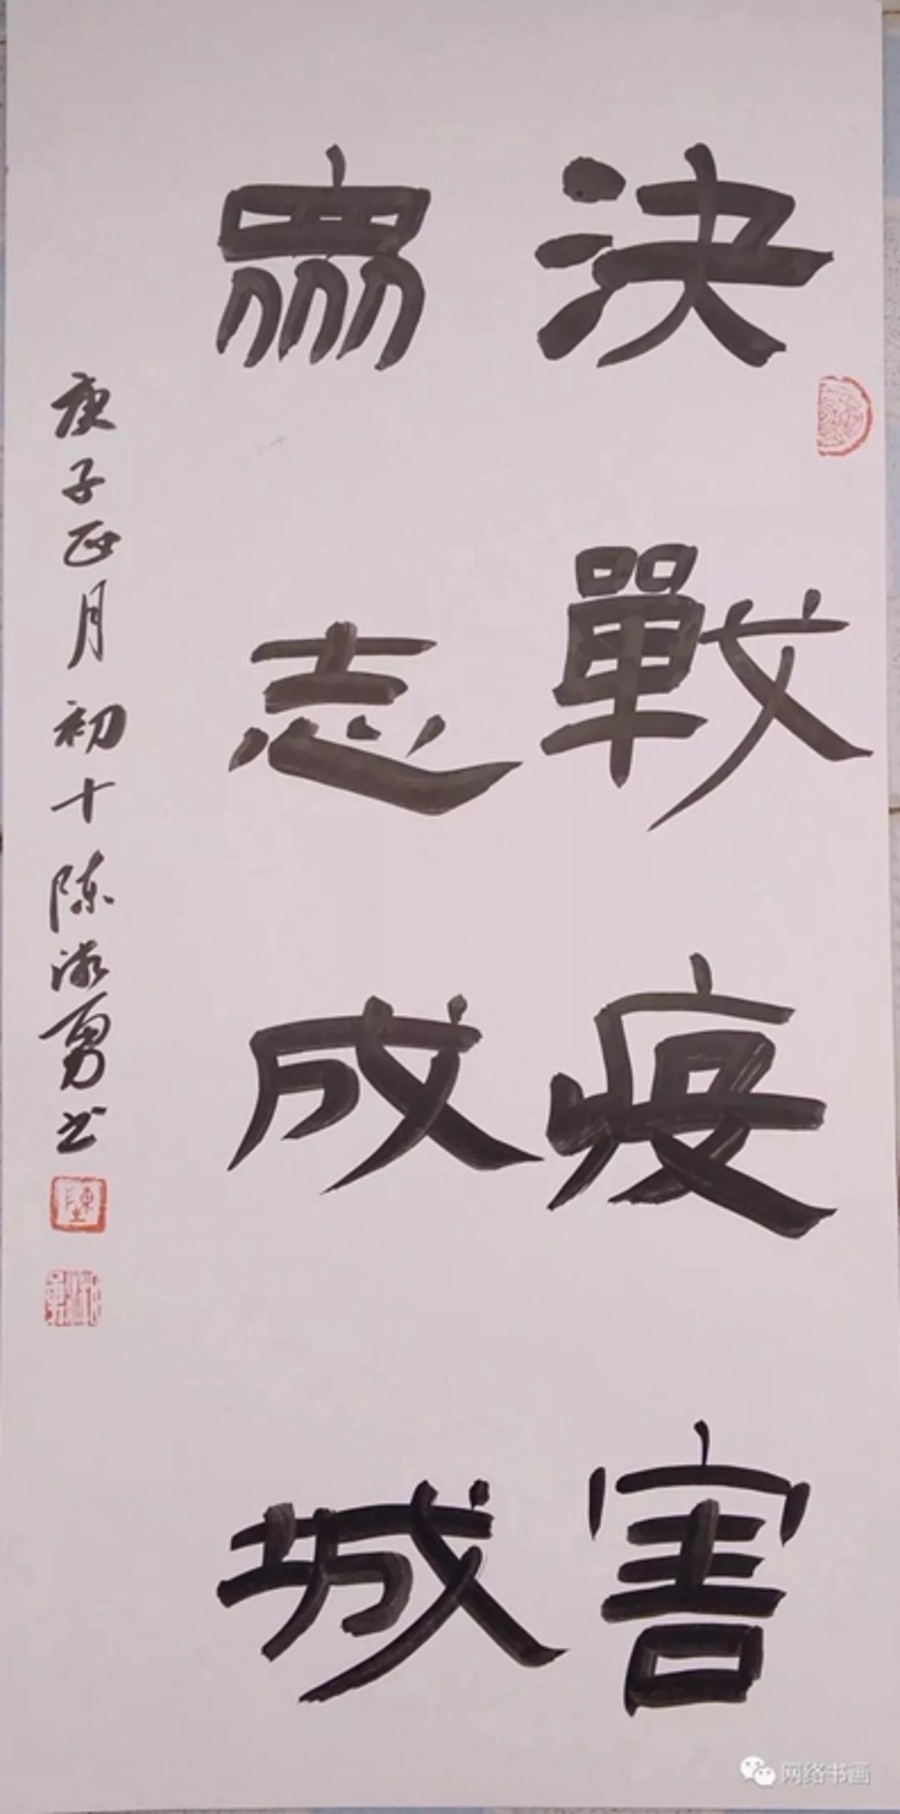 決戰疫害
眾志成城
庚子正月初十陈淑勇书
网络书画